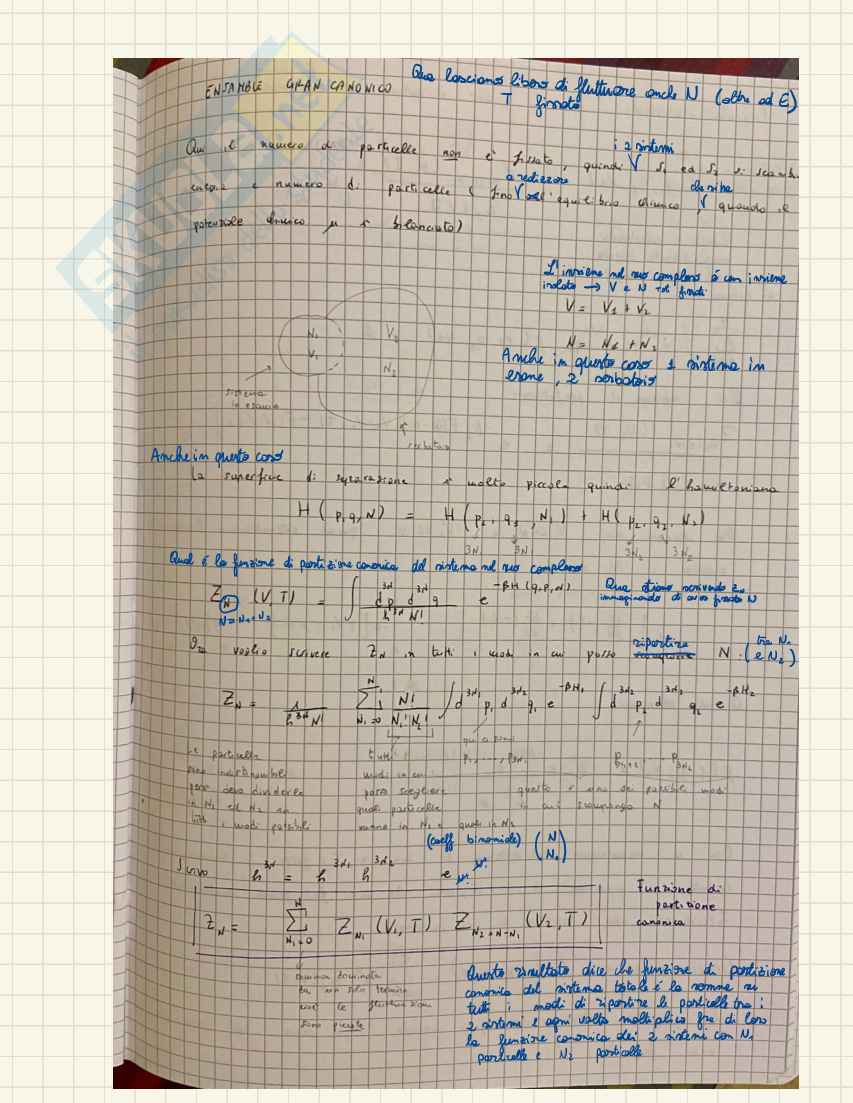 ENSAMBLE GRAN CANONICO
Qua lasciamo libero di fluttuare anche N (oltre ad E)
T fissato
i 2 sistemi
Qui il numero di particelle non è fissato, quindi S1 ed S2 si scamb.
a rediezoro
che si ha
energia e numero di particelle (fino all'equilibrio chimico, quando il
potenziale chimico μ è bilanciato)
L'insieme nel suo complesso è un insieme
isolato → V e N tot fissati
V = V1 + V2
N = N1 + N2
Anche in questo caso 1 sistema in
esame, 2 serbatoio
N1
V1
V2
N2
sistema
in esame
serbatoio
Anche in questo caso
la superficie di separazione è molto piccola quindi l'hamiltoniana
H (p, q, N) = H (p1, q1, N1) + H (p2, q2, N2)
3N1 3N1 3N2 3N2
Qual è la funzione di partizione canonica del sistema nel suo complesso
Z_N (V, T) = ∫ d^3N p d^3N q / h^3N N! e^-βH(q,p,N)
N = N1 + N2
Qua stiamo scrivendo Z_N
immaginando di aver fissato N
Ora voglio scrivere Z_N in tutti i modi in cui posso ripartire N (tra N1 e N2)
Z_N = 1/(h^3N N!) Σ_{N1=0}^{N} N!/(N1! N2!) ∫ d^3N1 p1 d^3N1 q1 e^-βH1 ∫ d^3N2 p2 d^3N2 q2 e^-βH2
Le particelle
sono indistinguibili
però devo dividerle
in N1 ed N2 in
tutti i modi possibili
tutti i
modi in cui
posso scegliere
quali particelle
vanno in N1 e quali in N2
p1, ..., p3N1
questo è uno dei possibili modi
in cui N
(coeff binomiale) (N N1)
Scrivo h^3N = h^3N1 h^3N2
Z_N = Σ_{N1=0}^{N} Z_N1 (V1, T) Z_N2=N-N1 (V2, T)
Funzione di
partizione
canonica
somma dominata
da un solo termine
le fluttuazioni
sono piccole
Questo risultato dice che funzione di partizione
canonica del sistema totale è la somma su
tutti i modi di ripartire le particelle tra i
2 sistemi e ogni volta moltiplico fra di loro
la funzione canonica dei 2 sistemi con N1
particelle e N2 particelle